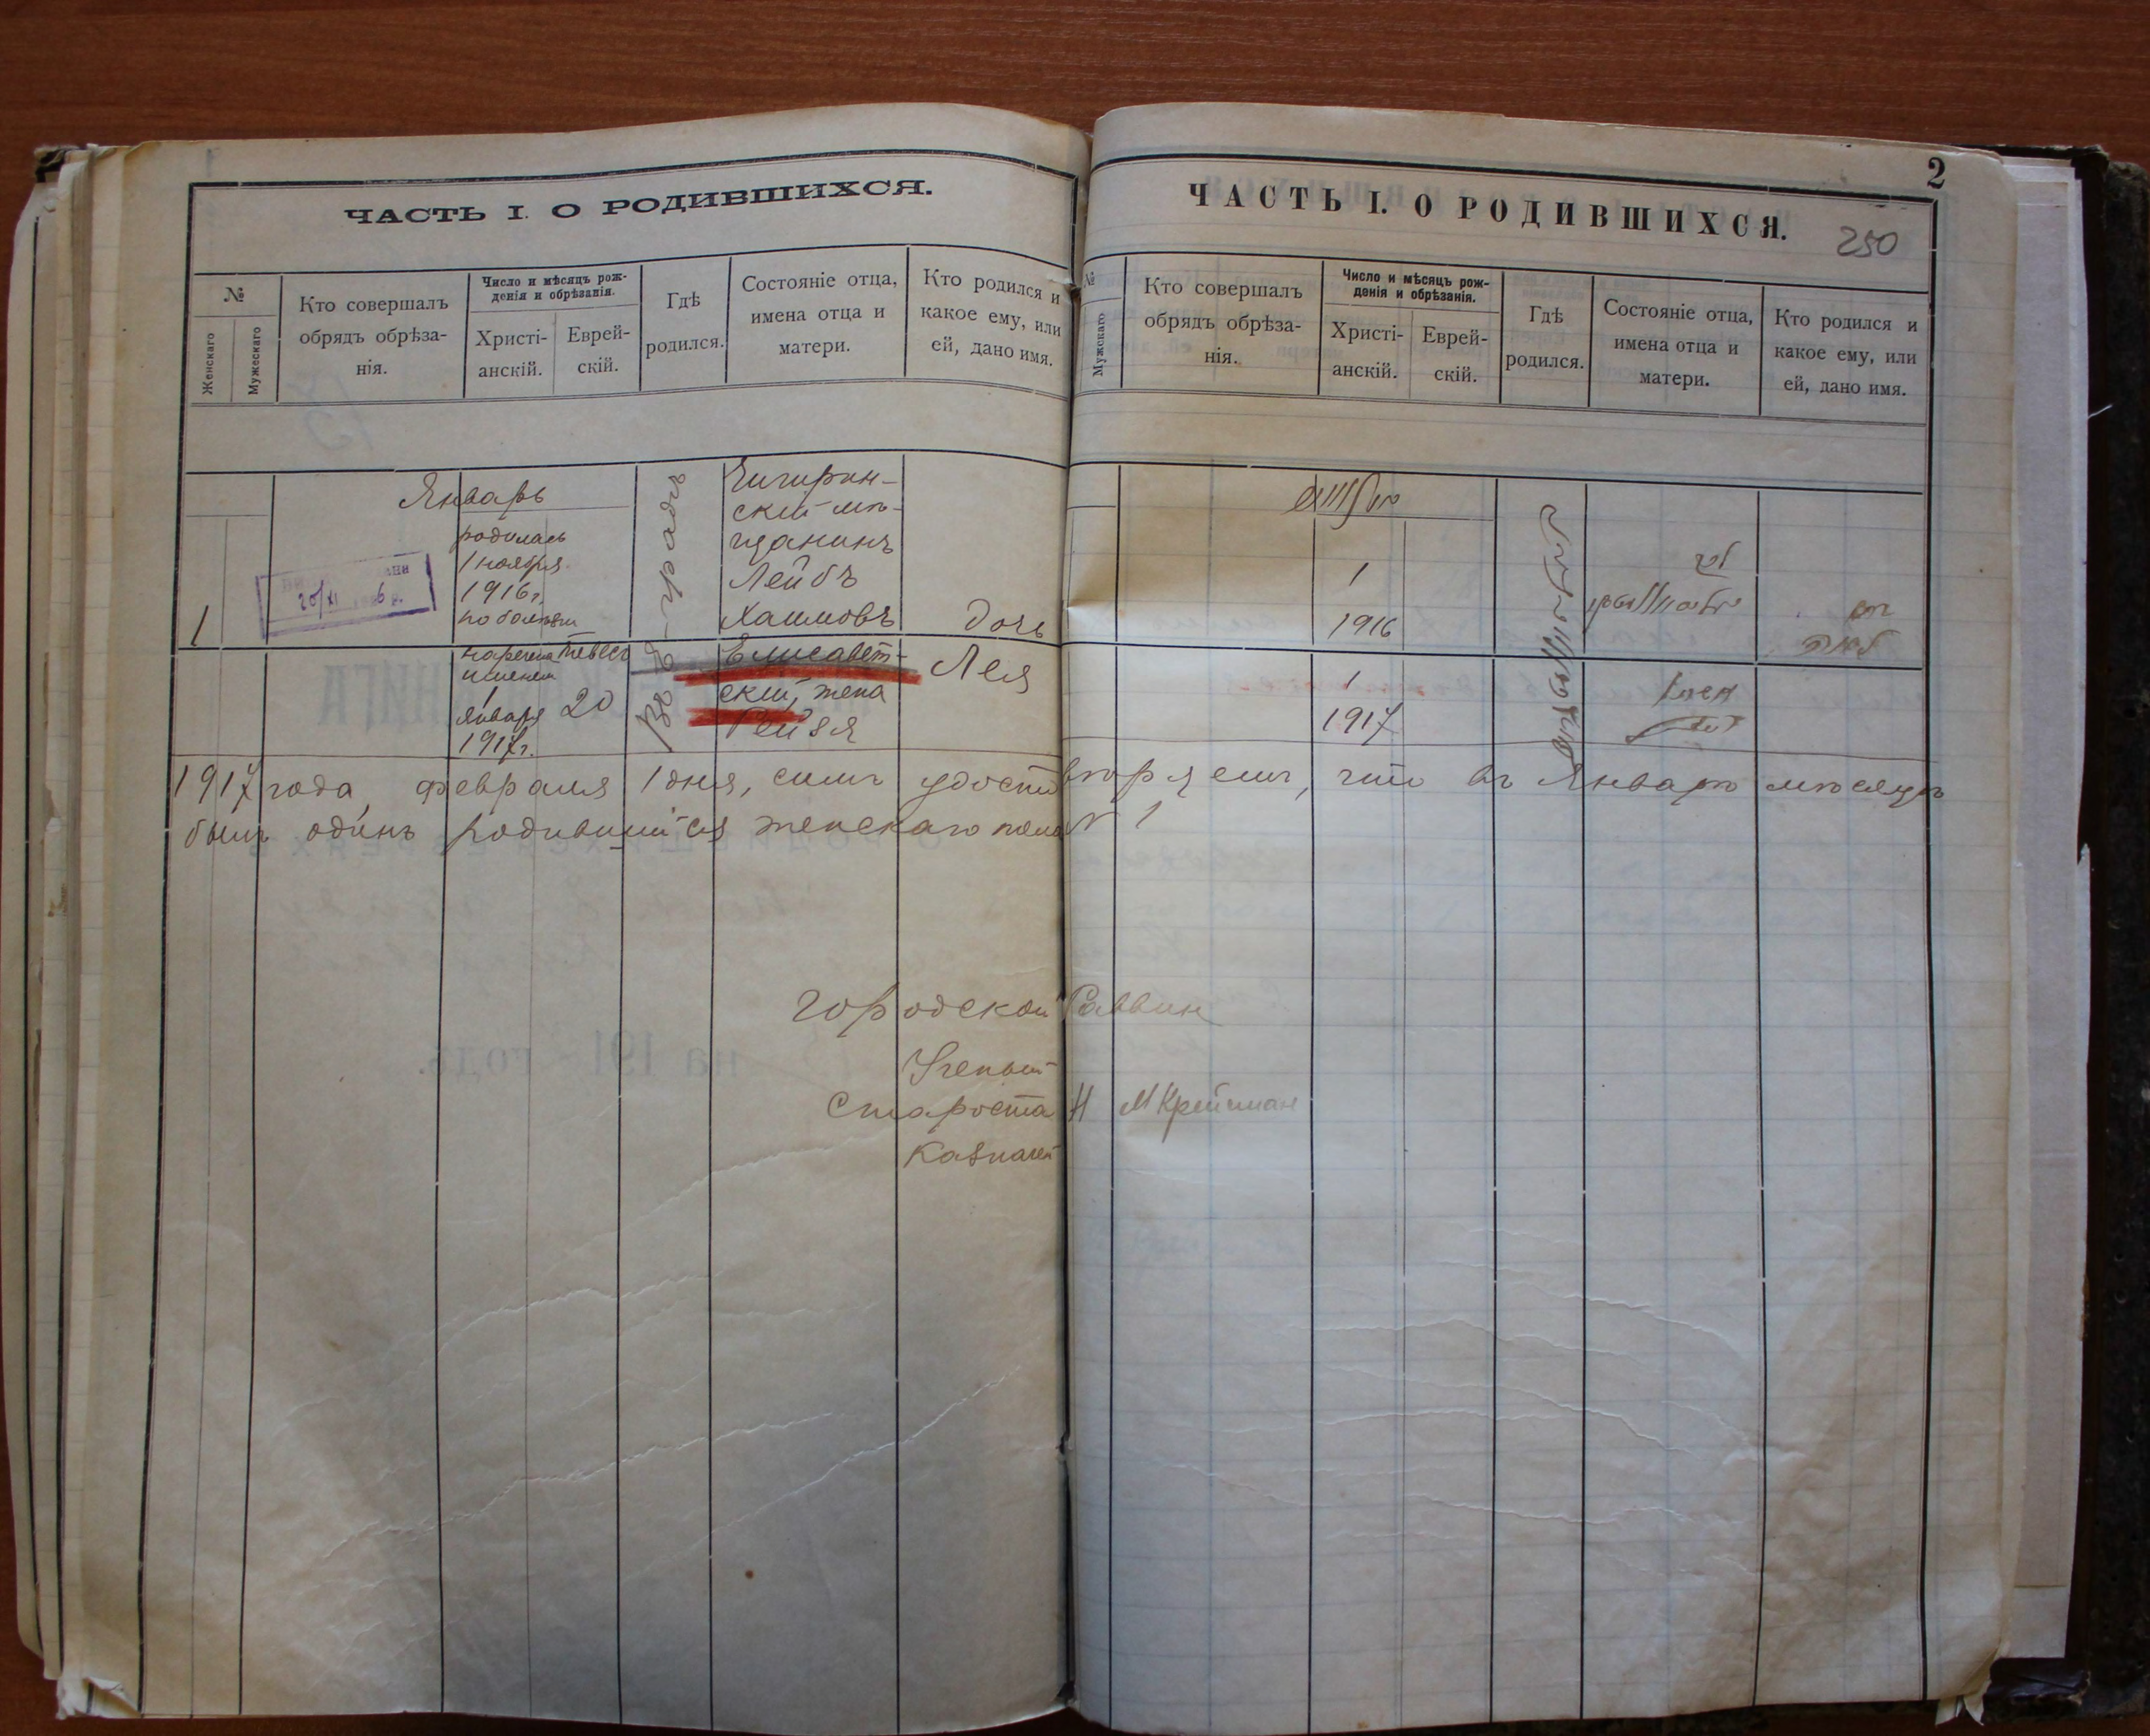 ЧАСТЬ I. О РОДИВШИХСЯ.
№
Женскаго
Мужескаго
Кто совершалъ
обрядъ обрѣза-
нія.
Число и мѣсяцъ рож-
денія и обрѣзанія.
Христі-
анскій.
Еврей-
скій.
Гдѣ
родился.
Состояніе отца,
имена отца и
матери.
Кто родился и
какое ему, или
ей, дано имя.
Январь
1
родилась
1 ноября
1916 г.
по болѣзни
наречена
именем
1
января
1917 г.
Тевес
20
Чигирин-
скій мѣ-
щанинъ
Лейбъ
Хаимовъ
Елисавет-
скій, жена
Рейзя
дочь
Лея
1917 года, февраля 1 дня, симъ удостовѣряемъ, что въ Январѣ мѣсяцѣ
былъ одинъ родившійся женскаго пола № 1
Городской Раввин
Ученый
Староста Н М Крейчман
Казначей
2
ЧАСТЬ I. О РОДИВШИХСЯ.
250
№
Мужскаго
Кто совершалъ
обрядъ обрѣза-
нія.
Число и мѣсяцъ рож-
денія и обрѣзанія.
Христі-
анскій.
Еврей-
скій.
Гдѣ
родился.
Состояніе отца,
имена отца и
матери.
Кто родился и
какое ему, или
ей, дано имя.
1
1916
1
1917